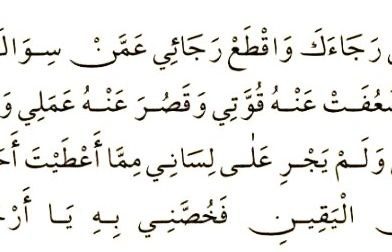 رَجَاءَكَ وَاقْطَعْ رَجَائِي عَمَّنْ سِوَا
عَنْهُ قُوَّتِي وَقَصُرَ عَنْهُ عَمَلِي وَ
وَلَمْ يَجْرِ عَلَى لِسَانِي مِمَّا أَعْطَيْتَ
الْيَقِينِ فَخُصَّنِي بِهِ يَا